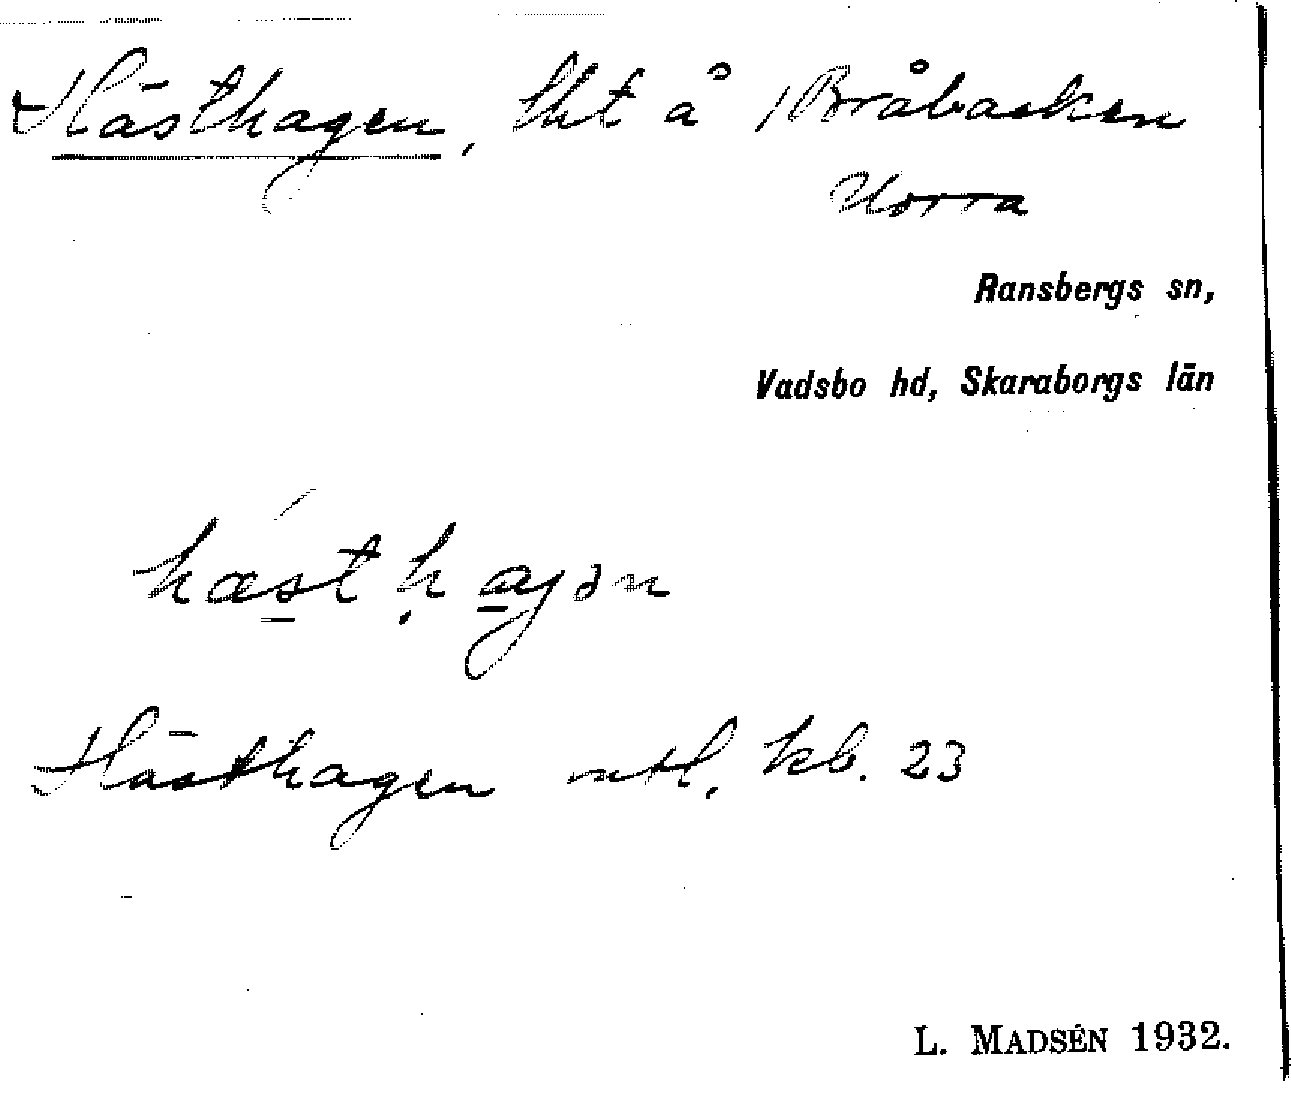 Hästhagen, lht å Bråbacken
Norra
Ransbergs sn,
Vadsbo hd, Skaraborgs län
hästhagən
Hästhagen utl. kb. 23
L. MADSÉN 1932.